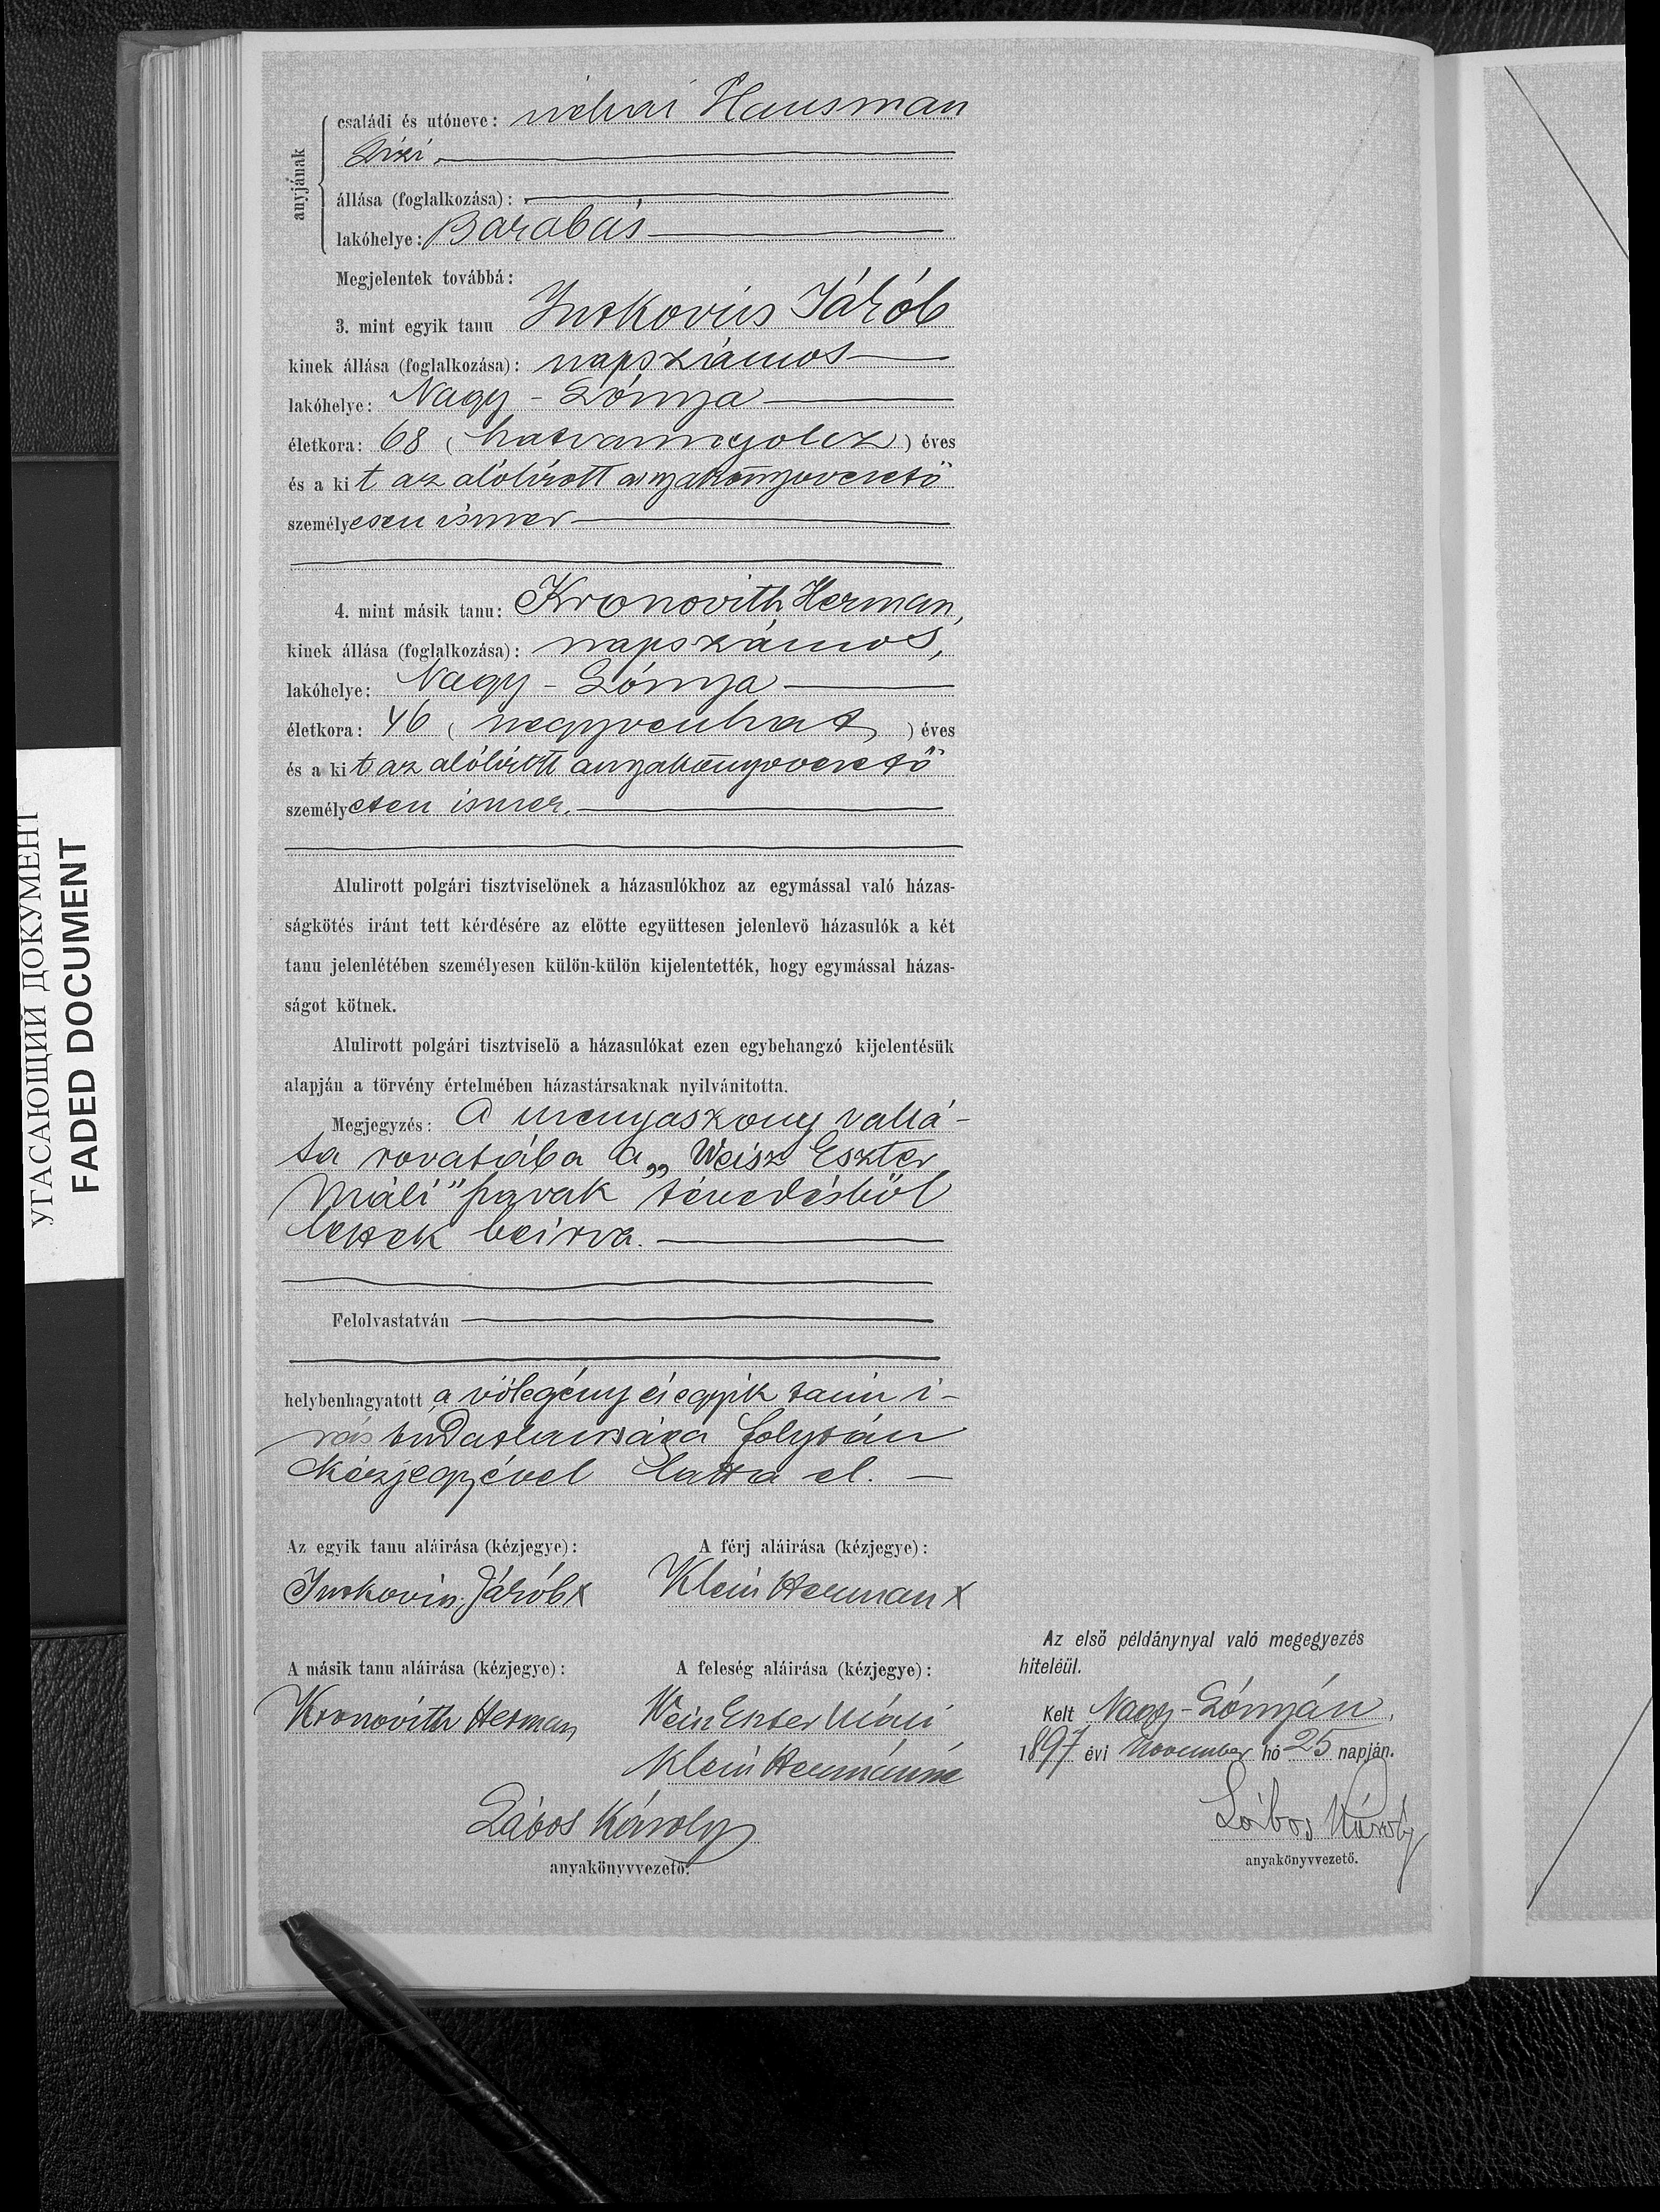 anyjának
családi és utóneve: néhai Hausman
Zizi.
állása (foglalkozása):
lakóhelye: Barabás
Megjelentek továbbá:
3. mint egyik tanu Jákób
kinek állása (foglalkozása): napszámos
lakóhelye: Nagy-Lónya
életkora: 68 (hatvannyolcz) éves
és a kit az alólirott anyakönyvvezető
személyesen ismer
4. mint másik tanu: Kronovith Herman,
kinek állása (foglalkozása): napszámos,
lakóhelye: Nagy-Lónya
életkora: 46 (negyvenhat) éves
és a kit az alólirott anyakönyvvezető
személyesen ismer.
Alulirott polgári tisztviselönek a házasulókhoz az egymással való házas-
ságkötés iránt tett kérdésére az elötte együttesen jelenlevö házasulók a két
tanu jelenlétében személyesen külön-külön kijelentették, hogy egymással házas-
ságot kötnek.
Alulirott polgári tisztviselö a házasulókat ezen egybehangzó kijelentésük
alapján a törvény értelmében házastársaknak nyilvánitotta.
Megjegyzés: A menyasszony vallá-
sa rovatába a „Weisz Eszter
Máli" szavak tévedésből
lettek beirva.
Felolvastatván
helybenhagyatott a vőlegény és egyik tanu i-
rás tudatlansága folytán
kézjegyével latta el.
Az egyik tanu aláirása (kézjegye):
A férj aláirása (kézjegye):
Jákób x
Klein Herman x
A másik tanu aláirása (kézjegye):
A feleség aláirása (kézjegye):
Kronovith Herman
Weisz Eszter Máli
Klein Hermánné
Lábos Károly
anyakönyvvezető.
Az első példánynyal való megegyezés
hiteléül.
Kelt Nagy-Lónyán,
1897 évi November hó 25 napján.
Lábos Károly
anyakönyvvezető.
УГАСАЮЩИЙ ДОКУМЕНТ
FADED DOCUMENT